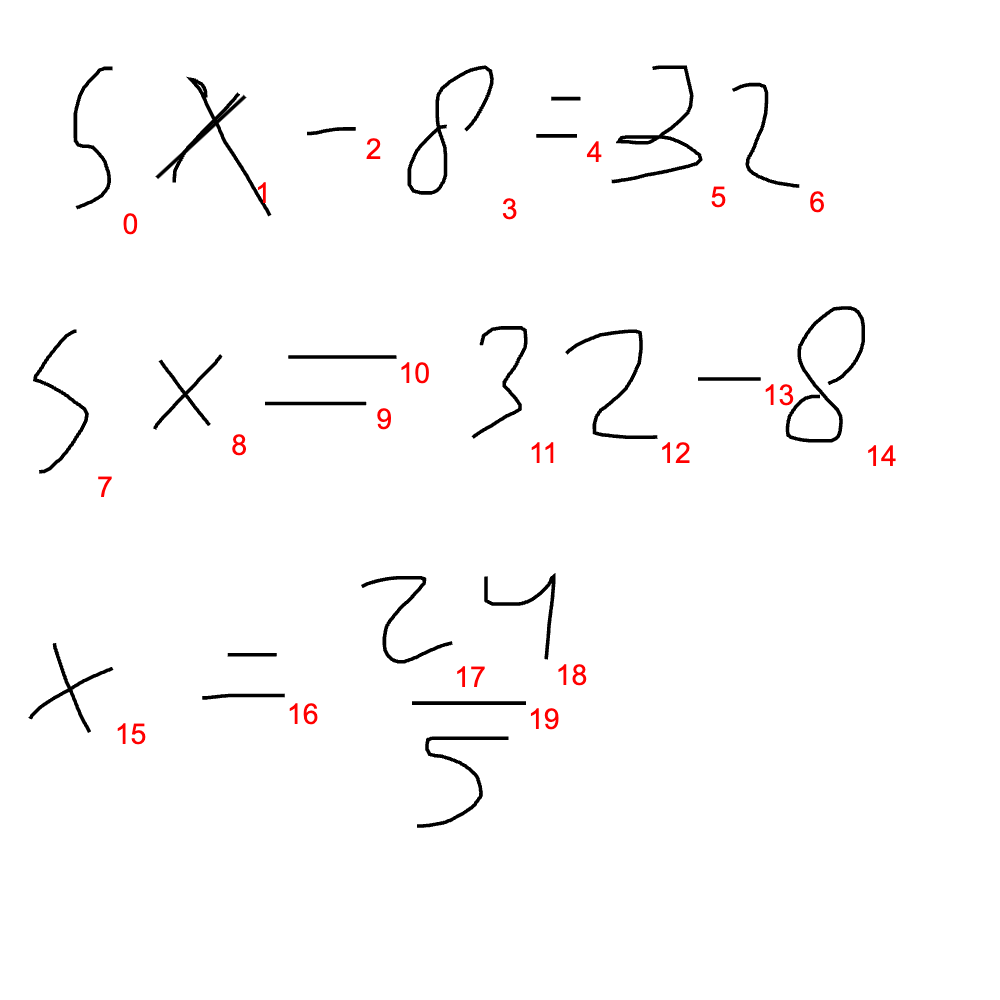 5x - 8 = 32
0 1 2 3 4 5 6
5x = 32 - 8
7 8 9 10 11 12 13 14
x = 24/5
15 16 17 18 19